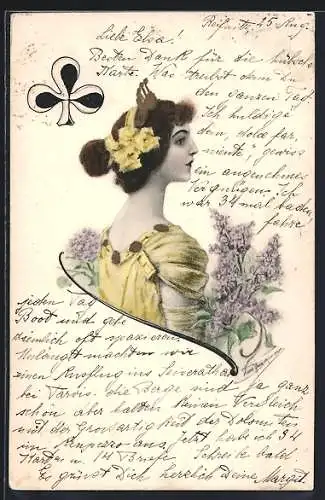 Reifnitz, 25. Aug.
Liebe Elsa!
Besten Dank für die hübsche
Karte. Was treibst denn du
den ganzen Tag.
Ich huldige
dem „dolce far
niente", gewiss
ein angenehmes
Vergnügen. Ich
war 34 mal baden,
fahre
jeden Tag
Boot und gehe
ziemlich oft spazieren.
Unlängst machten wir
einen Ausflug ins
bei Tarvis. Die Berge sind ja ganz
schön aber halten keinen Vergleich
mit der Grossartigkeit der Dolomiten
in Ampezzo aus. Jetzt habe ich 34
Karten u. 14 Briefe. Schreibe bald.
Es grüsst Dich herzlich Deine Margit.